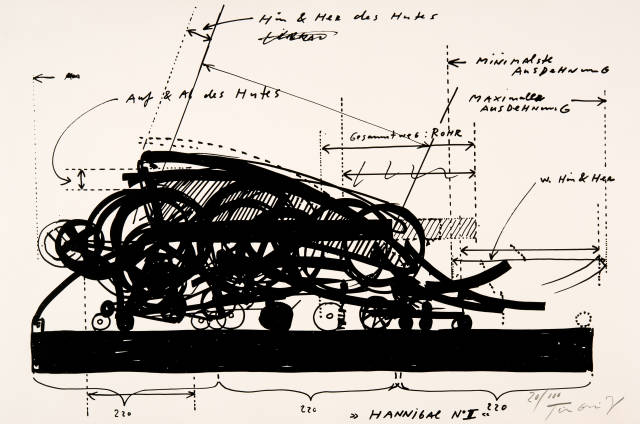 Hin & Her des Hutes
Auf & Ab des Hutes
Minimalste
Ausdehnung
Maximale
Ausdehnung
Gesamtweg: Rohr
w. Hin & Her
220
220
220
» Hannibal N°II «
20/100